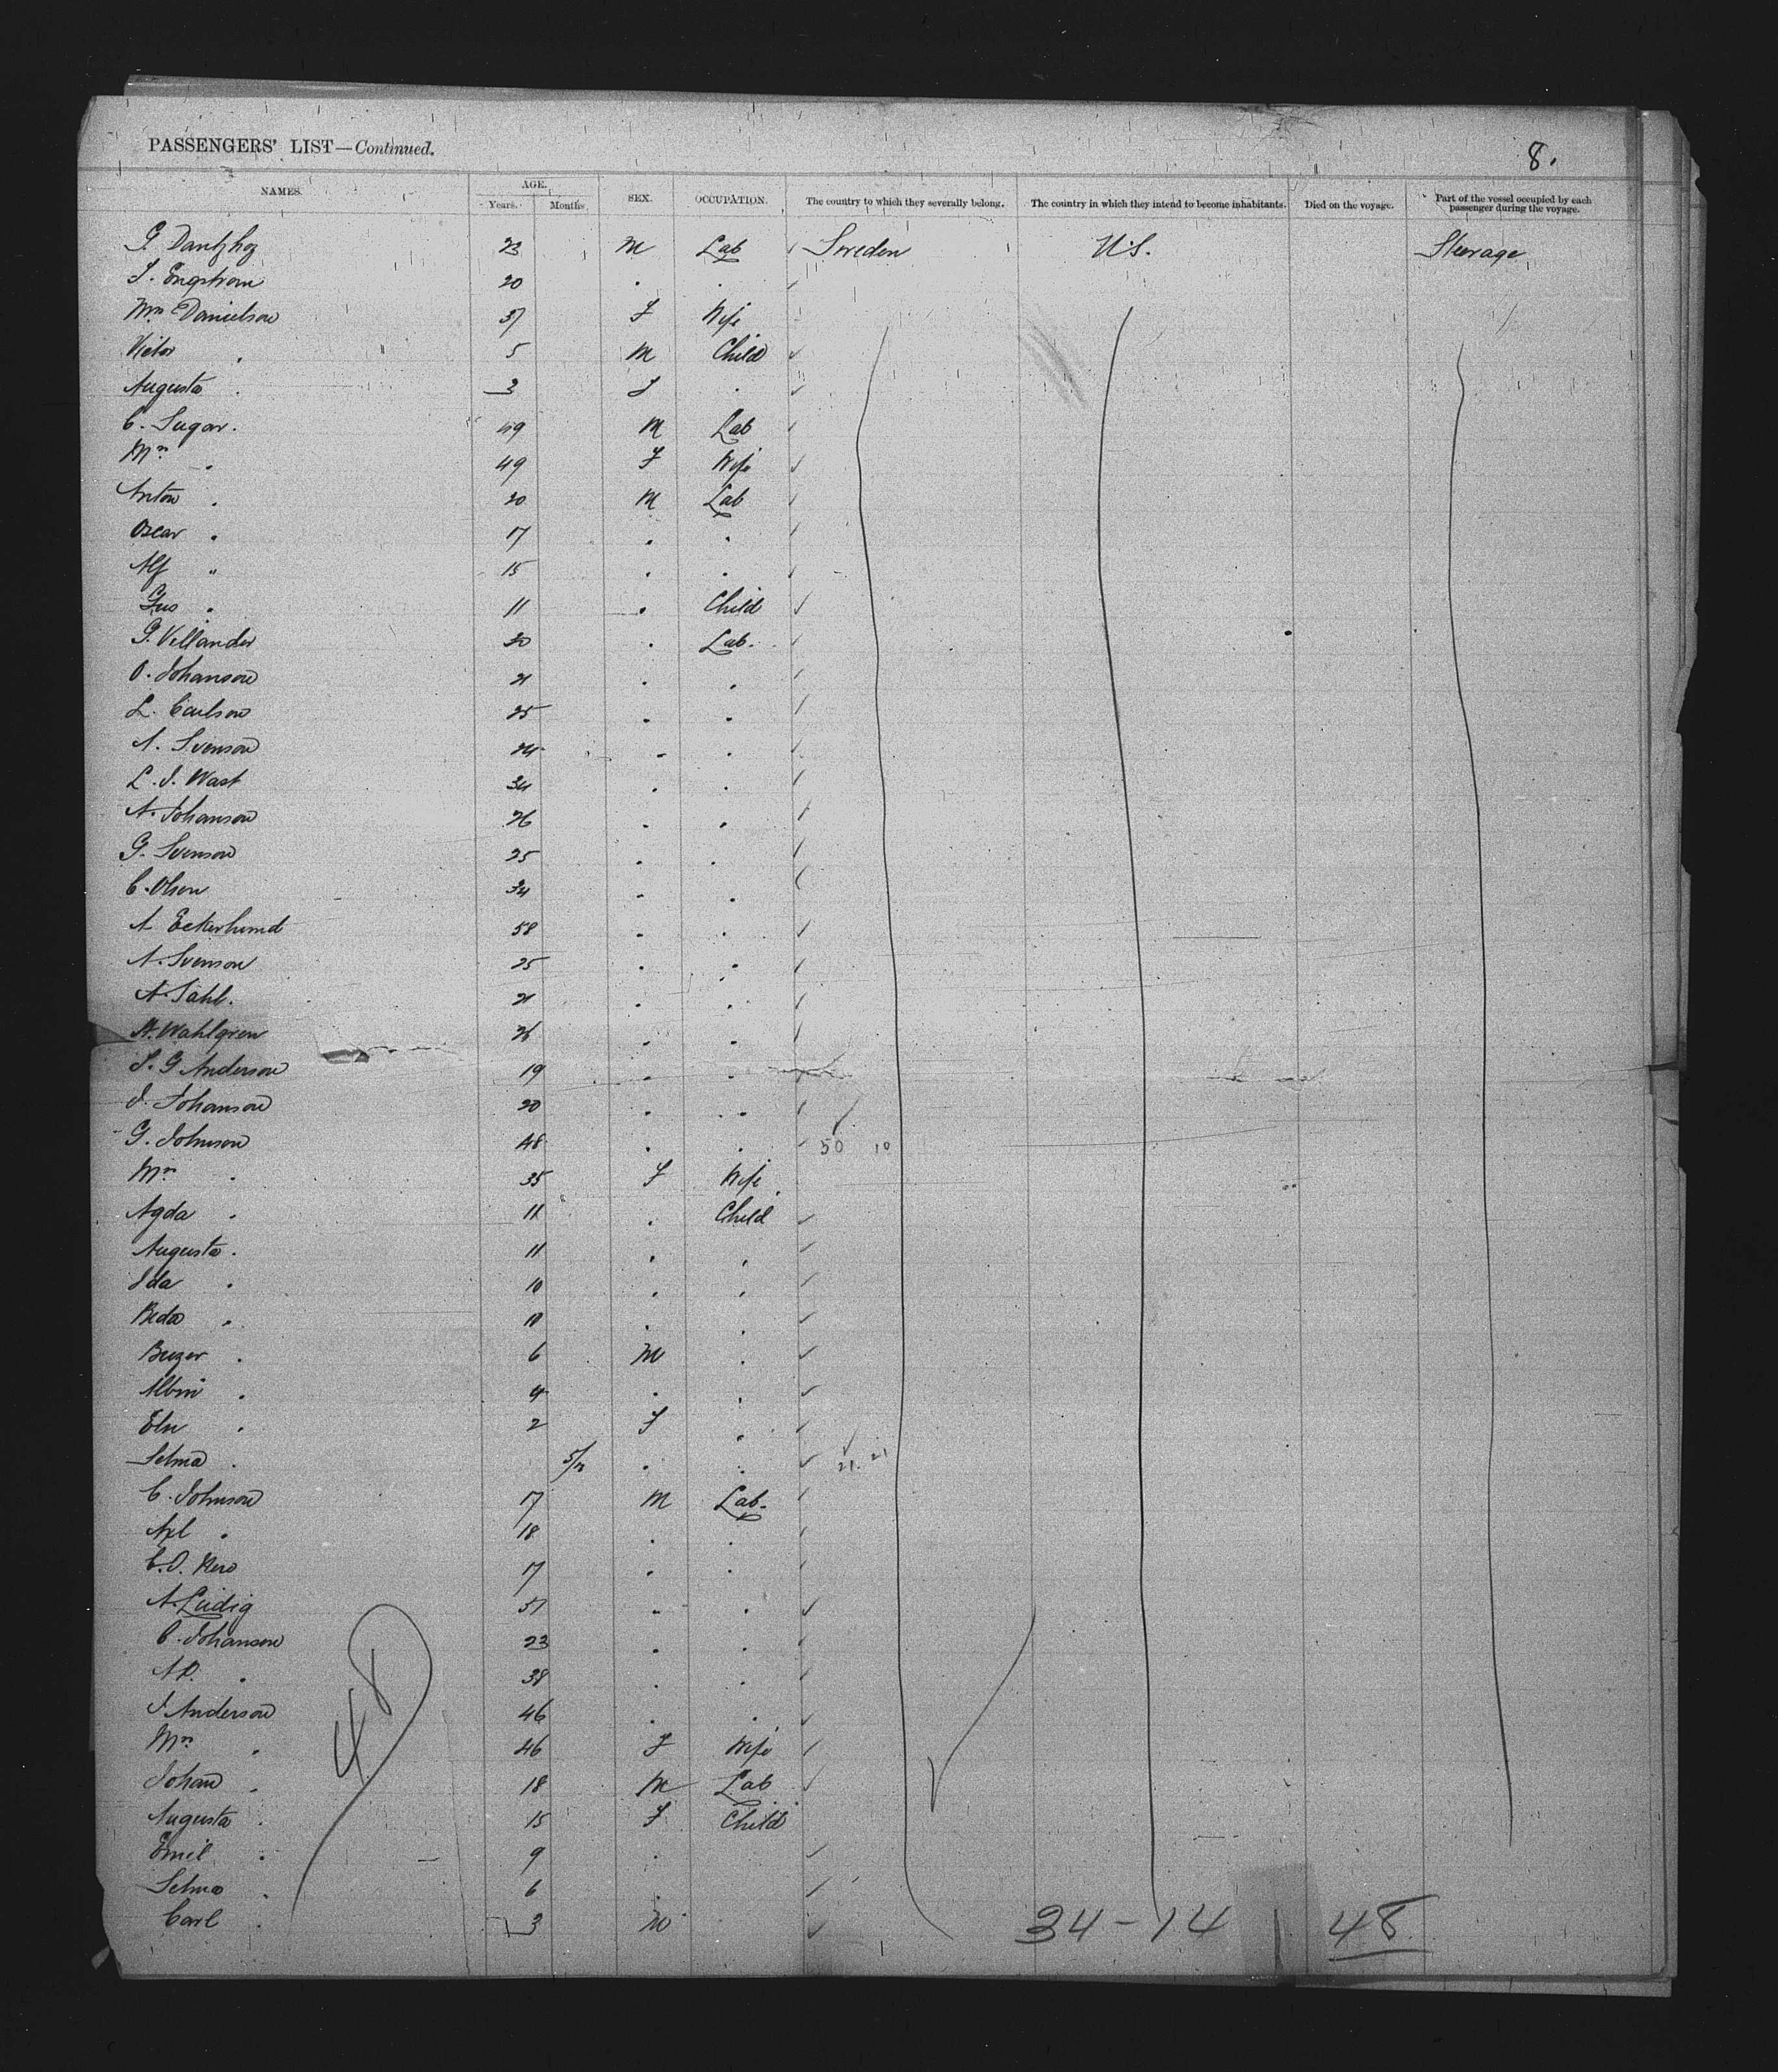 PASSENGERS' LIST—Continued.
8.
NAMES. AGE. Years. Months. SEX. OCCUPATION. The country to which they severally belong. The country in which they intend to become inhabitants. Died on the voyage. Part of the vessel occupied by each passenger during the voyage.
23 M Lab Sweden U.S. Steerage
Engstrom 20 . .
Mrs Danielson 37 F Wife
Victor . 5 M Child
Augusta . 3 F .
C. Sugar. 49 M Lab
Mrs . 49 F Wife
Anton . 20 M Lab
Oscar . 17 . .
Alf " 15 . .
Gus . 11 . Child
G. Villander 20 . Lab.
O. Johanson 21 . .
L. Carlson 25 . .
A. Svenson 24 . .
L. J. Wast 34 . .
A. Johanson 26 . .
G. Svenson 25 . .
C. Olson 34 . .
A Eckerlund 58 . .
A. Svenson 25 . .
A. Sahl. 21 . .
Wahlgren 26 . .
S. G Anderson 19 . .
J. Johanson 20 . .
G. Johnson 48 . . 50 10
Mrs . 35 F Wife
Agda . 11 . Child
Augusta . 11 . .
Ida . 10 . .
Beda . 10 . .
. 6 M .
Albin . 4 . .
. 2 F .
Selma . 5/12 . . 21. 21
C. Johnson 17 M Lab.
Axl . 18 . .
17 . .
A. Ludig 51 . .
C. Johanson 23 . .
A P. . 38 . .
J. Anderson 46 . .
Mrs . 46 F Wife
Johan . 18 M Lab
Augusta . 15 F Child
Emil . 9 .
Selma . 6 .
Carl . 3 M
48
34-14 48